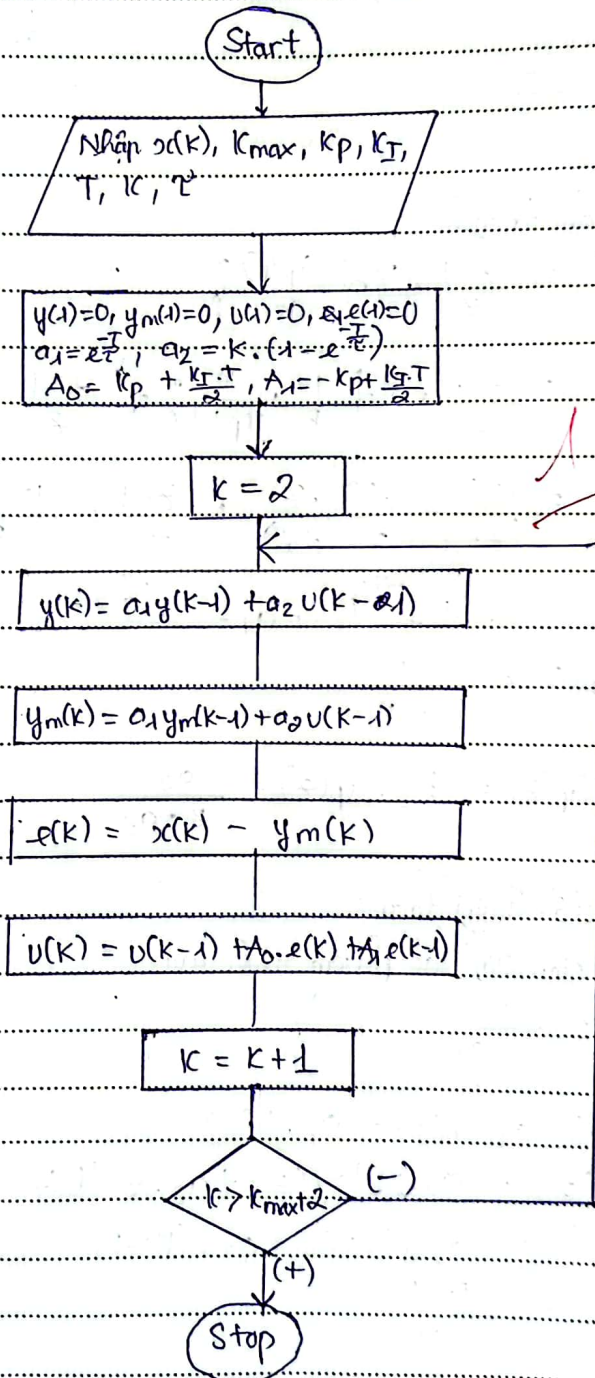 Start
Nhập x(k), Kmax, Kp, KI,
T, K, τ
y(1)=0, ym(1)=0, u(1)=0, e(1)=0
a1=e^(-T/τ), a2=K.(1-e^(-T/τ))
A0=Kp+KI.T/2, A1=-Kp+KI.T/2
K=2
y(k)=a1y(k-1)+a2u(k-1)
ym(k)=a1ym(k-1)+a2u(k-1)
e(k)=x(k)-ym(k)
u(k)=u(k-1)+A0.e(k)+A1e(k-1)
K=K+1
K>Kmax+2
(-)
(+)
Stop